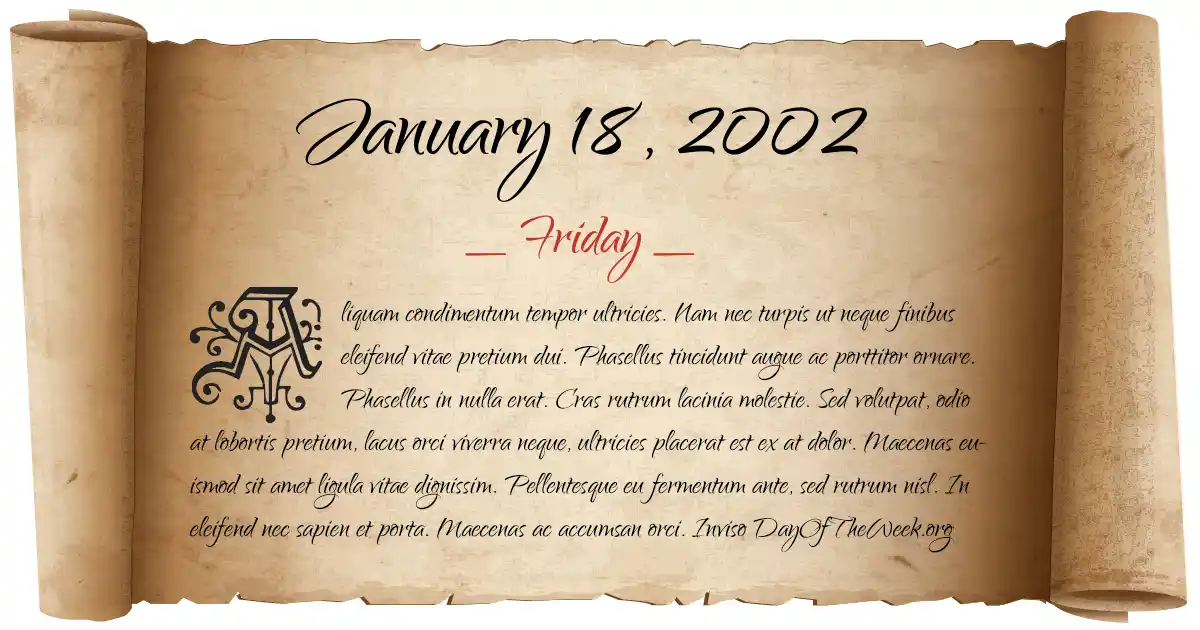 January 18, 2002
_ Friday _
Aliquam condimentum tempor ultricies. Nam nec turpis ut neque finibus
eleifend vitae pretium dui. Phasellus tincidunt augue ac porttitor ornare.
Phasellus in nulla erat. Cras rutrum lacinia molestie. Sed volutpat, odio
at lobortis pretium, lacus orci viverra neque, ultricies placerat est ex at dolor. Maecenas eu-
ismod sit amet ligula vitae dignissim. Pellentesque eu fermentum ante, sed rutrum nisl. In
eleifend nec sapien et porta. Maecenas ac accumsan orci. Inviso DayOfTheWeek.org